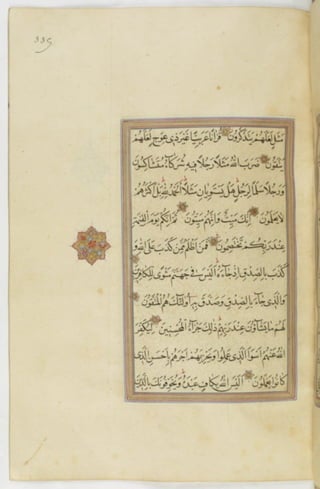 335
مثل لعلهم يتذكرون قرآنا عربيا غير ذي عوج لعلهم
يتقون ضرب الله مثلا رجلا فيه شركاء متشاكسون
ورجلا سلما لرجل هل يستويان مثلا الحمد لله بل اكثرهم
لا يعلمون انك ميت وانهم ميتون ثم انكم يوم القيمة
عند ربكم تختصمون فمن اظلم ممن كذب على الله و
كذب بالصدق اذ جاءه اليس في جهنم مثوى للكافرين
والذي جاء بالصدق وصدق به اولئك هم المتقون
لهم ما يشاؤن عند ربهم ذلك جزاء المحسنين ليكفر
الله عنهم اسوأ الذي عملوا ويجزيهم اجرهم باحسن الذي
كانوا يعملون اليس الله بكاف عبده ويخوفونك بالذين